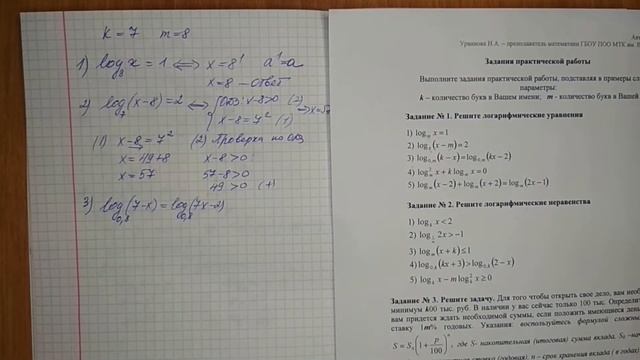 k = 7   m = 8
1) log₈ x = 1 ⟺ x = 8¹   a¹ = a
x = 8 – ответ
2) log₇ (x-8) = 2 ⟺ { ОДЗ: x-8>0 (2)
x-8 = 7² (1)
(1) x-8 = 7²   (2) Проверка по ОДЗ
x = 49+8   x-8>0
x = 57   57-8>0
49 >0 (+)
3) log₀,₈ (7-x) = log₀,₈ (7x-2)
Урванова Н.А. – преподаватель математики ГБОУ ПОО МТК им.
Задания практической работы
Выполните задания практической работы, подставляя в примеры
параметры:
k – количество букв в Вашем имени; m - количество букв в Вашей
Задание № 1. Решите логарифмические уравнения
1) logₘ x = 1
2) logₖ (x − m) = 2
3) log₀,ₘ (k − x) = log₀,ₘ (kx − 2)
4) log²ₖ x + k logₘ x = 0
5) logₘ (x − 2) + logₘ (x + 2) = logₘ (2x − 1)
Задание № 2. Решите логарифмические неравенства
1) logₖ x < 2
2) log 2x > −1
3) logₘ (x + k) ≤ 1
4) log₀,ₖ (kx + 3) > log₀,ₖ (2 − x)
5) logₖ x − m log x ≥ 0
Задание № 3. Решите задачу. Для того чтобы открыть свое дело, вам
минимум k00 тыс. руб. В наличии у вас сейчас только 100 тыс.
вам придется ждать необходимой суммы, если положить имеющиеся
ставку 1m% годовых. Указания: воспользуйтесь формулой сложных
S = S₀(1 + p/100)ⁿ, где S- накопительная (итоговая) сумма вклада, S₀ –
(годовая), n – срок хранения вклада ( в годах)